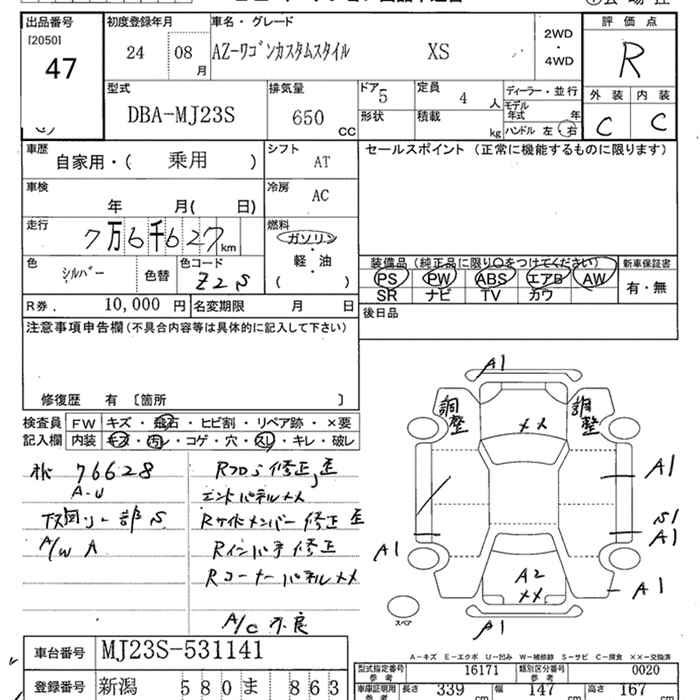 出品番号
[2050]
47
初度登録年月
24 08 月
車名・グレード
AZ-ワゴンカスタムスタイル XS
2WD
・
4WD
評価点
R
外装 内装
C C
型式
DBA-MJ23S
排気量
650 CC
ドア 5
形状
定員 4 人
積載 kg
ディーラー・並行
モデル年式 年
ハンドル 左 右
車歴
自家用・( 乗用 )
シフト
AT
車検
年 月( 日)
冷房
AC
走行
7万6千627 km
燃料
ガソリン
軽・油
( )
色
シルバー
色替
色コード
Z2S
セールスポイント (正常に機能するものに限ります)
装備品 (純正品に限り○をつけてください)
PS PW ABS エアB AW
SR ナビ TV カワ
新車保証書
有・無
R券. 10,000 円
名変期限 月 日
後日品
注意事項申告欄(不具合内容等は具体的に記入して下さい)
修復歴 有 〔箇所 〕
検査員
記入欄
FW キズ・飛石・ヒビ割・リペア跡・×要
内装 キズ・汚レ・コゲ・穴・スレ・キレ・破レ
76628
A-U
下廻り一部S
A/W A
RフロS修正,歪
エンドパネルXX
Rサイドメンバー修正歪
Rインパネ修正
RコーナーパネルXX
A/C不良
A1
調整
XX
調整
A1
S1
A1
A1
A1
A2
XX
A1
スペア
A-キズ E-エクボ U-凹み W-補修跡 S-サビ C-腐食 ××-交換済
車台番号
MJ23S-531141
登録番号
新潟 580 ま 863
型式指定番号
参考
16171
類別区分番号
参考
0020
車庫証明用
参考
長さ 339 cm
幅 147 cm
高さ 167 cm